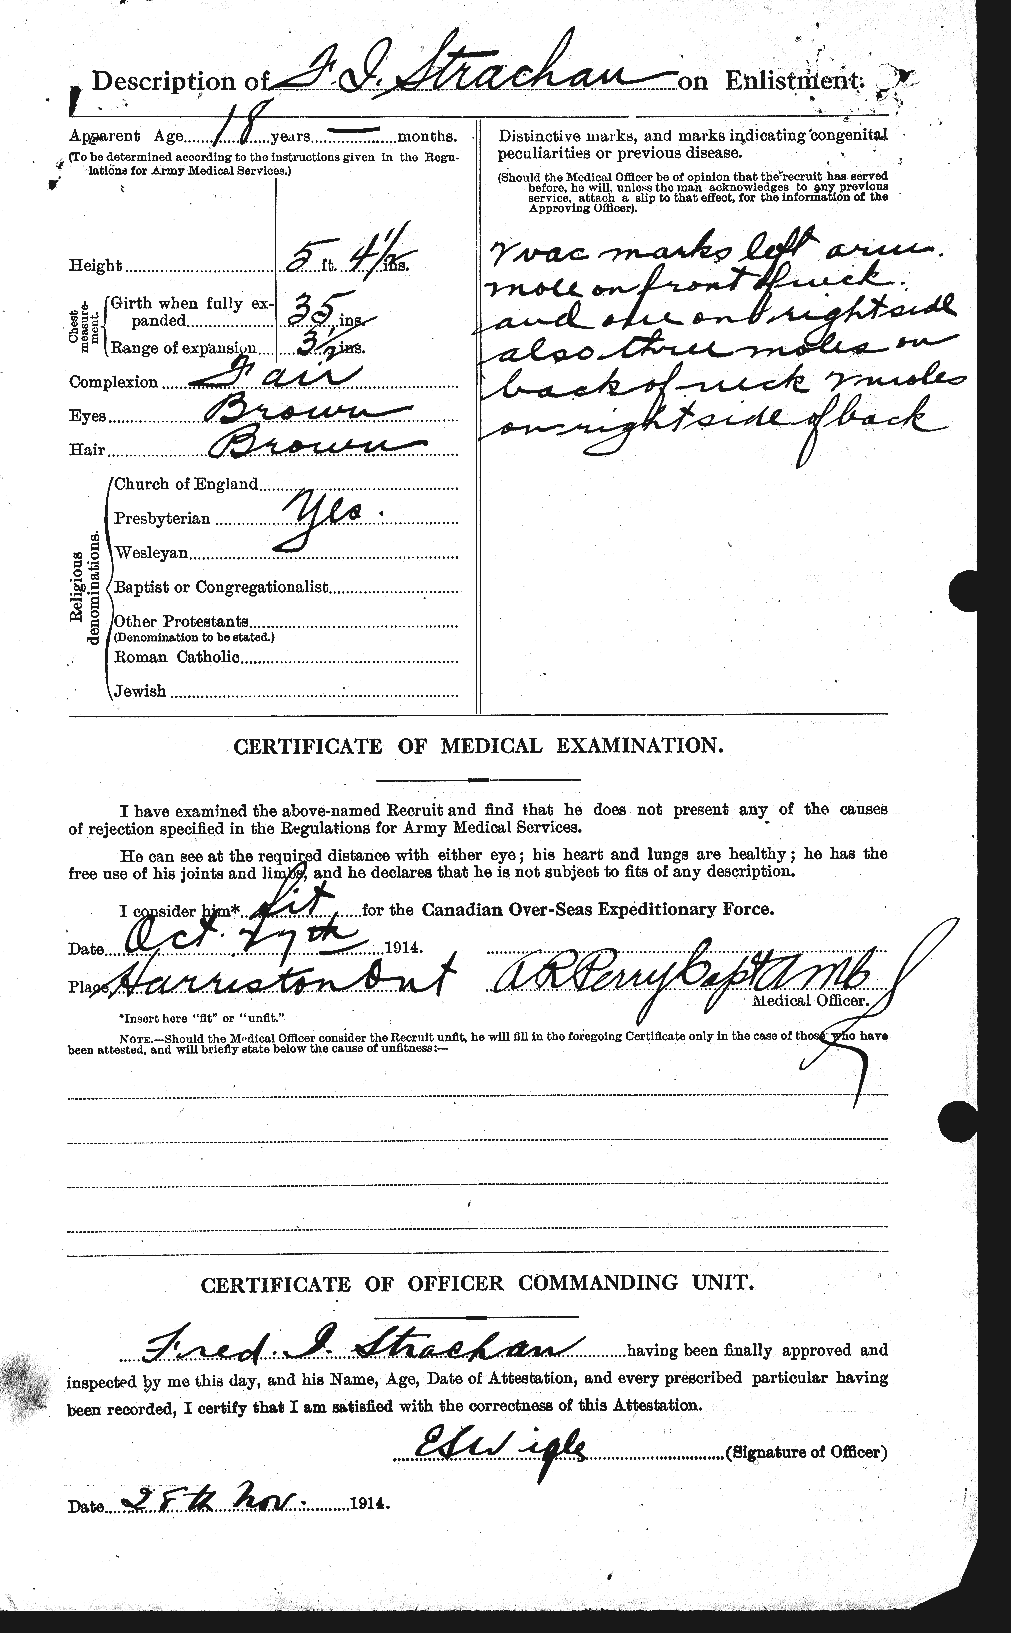 Description of F. I. Strachan on Enlistment.
Apparent Age 18 years — months.
(To be determined according to the instructions given in the Regu-
lations for Army Medical Services.)
Height 5 ft. 4 1/2 ins.
Chest measure-
ment.
Girth when fully ex-
panded 35 ins.
Range of expansion 3 1/2 ins.
Complexion Fair
Eyes Brown
Hair Brown
Religious
denominations.
Church of England
Presbyterian Yes.
Wesleyan
Baptist or Congregationalist
Other Protestants
(Denomination to be stated.)
Roman Catholic
Jewish
Distinctive marks, and marks indicating congenital
peculiarities or previous disease.
(Should the Medical Officer be of opinion that the recruit has served
before, he will, unless the man acknowledges to any previous
service, attach a slip to that effect, for the information of the
Approving Officer).
vac marks left arm.
mole on front of neck.
and one on right side
also three moles on
back of neck 2 moles
on right side of back
CERTIFICATE OF MEDICAL EXAMINATION.
I have examined the above-named Recruit and find that he does not present any of the causes
of rejection specified in the Regulations for Army Medical Services.
He can see at the required distance with either eye; his heart and lungs are healthy; he has the
free use of his joints and limbs, and he declares that he is not subject to fits of any description.
I consider him* fit for the Canadian Over-Seas Expeditionary Force.
Date Oct. 27th 1914.
Place Harriston Ont
A R Perry Capt AMC
Medical Officer.
*Insert here "fit" or "unfit."
NOTE.—Should the Medical Officer consider the Recruit unfit, he will fill in the foregoing Certificate only in the case of those who have
been attested, and will briefly state below the cause of unfitness:—
CERTIFICATE OF OFFICER COMMANDING UNIT.
Fred. I. Strachan having been finally approved and
inspected by me this day, and his Name, Age, Date of Attestation, and every prescribed particular having
been recorded, I certify that I am satisfied with the correctness of this Attestation.
ESWigle (Signature of Officer)
Date 28th Nov. 1914.